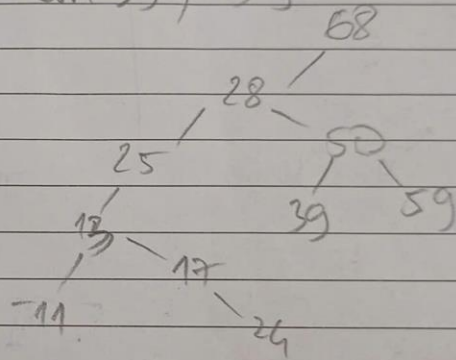 68
28
25 50
13 39 59
17
-11 24